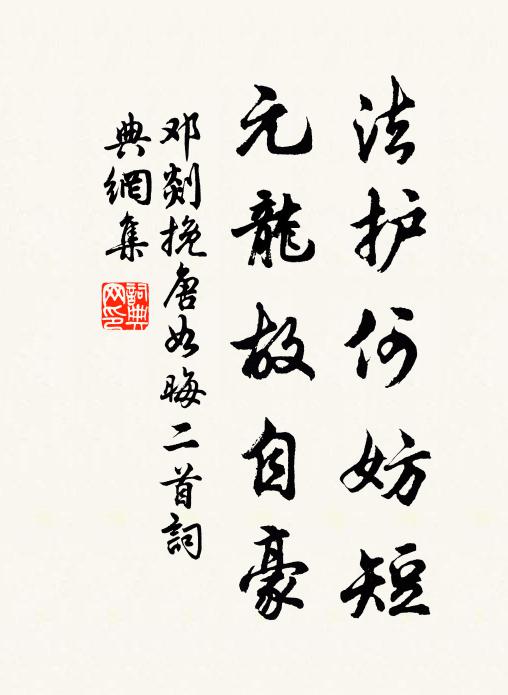 法护何妨短
元龍故自豪
邓剡挽唐如晦二首詞
典網集
詞典网印